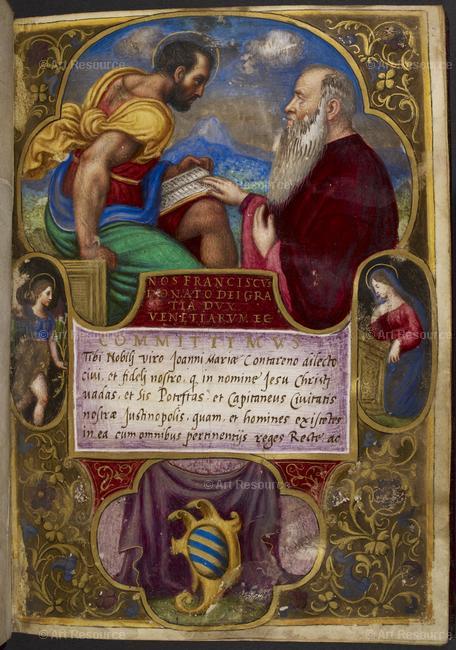 NOS FRANCISCVS
DONATO DEI GRA
TIA DVX
VENETIARVM EC
COMMITTIMVS
Tibi Nobili viro Ioanni Mariæ Contareno dilecto
civi, et fideli nostro, q. in nomine Jesu Christi
vadas, et sis Potestas et Capitaneus Civitatis
nostræ Justinopolis, quam, et homines existẽtes
in ea cum omnibus pertinentijs reges Recte ac
© Art Resource